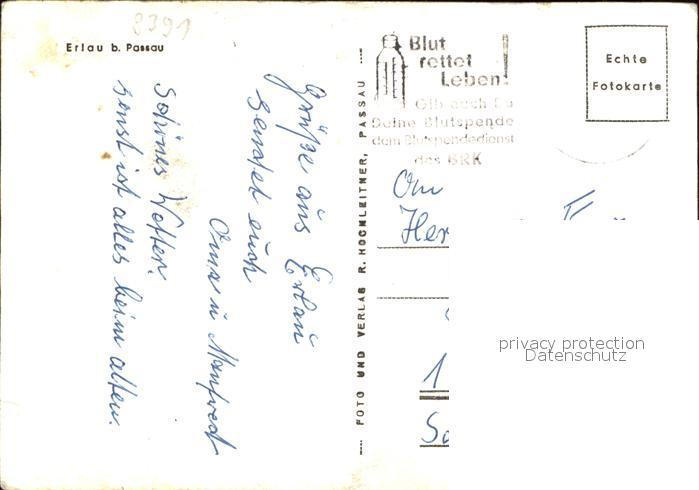 8391
Erlau b. Passau
Grüße aus Erlau
sendet euch
Oma u Manfred
Schönes Wetter.
sonst ist alles beim alten.
FOTO UND VERLAG R. HOCHLEITNER, PASSAU
Blut
rettet
Leben!
Gib auch Du
Deine Blutspende
dem Blutspendedienst
des BRK
Echte
Fotokarte
An
Her
1
privacy protection
Datenschutz